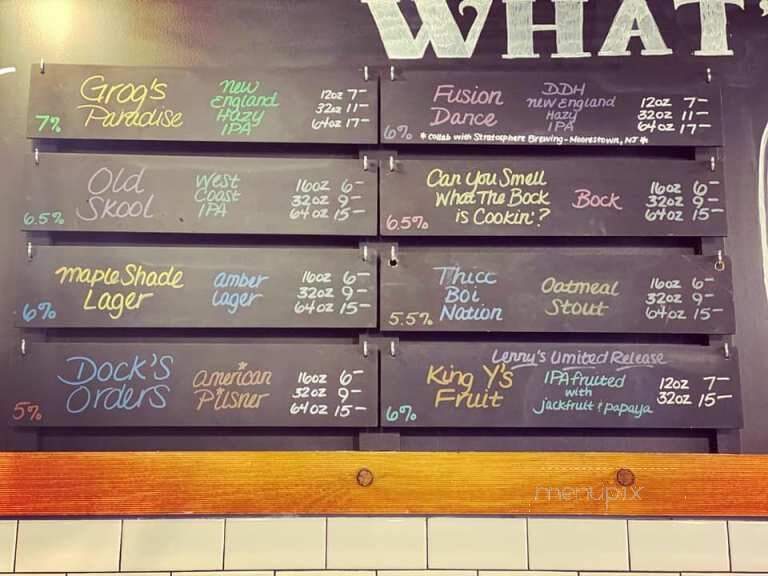 WHAT'
Grog's
Paradise
New
England
Hazy
IPA
12oz 7-
32oz 11-
64oz 17-
7%
Fusion
Dance
DDH
New England
Hazy
IPA
12oz 7-
32oz 11-
64oz 17-
6%
* collab with Stratosphere Brewing - Moorestown, NJ *
Old
Skool
West
Coast
IPA
16oz 6-
32oz 9-
64oz 15-
6.5%
Can You Smell
What The Bock
is Cookin'?
Bock
16oz 6-
32oz 9-
64oz 15-
6.5%
Maple Shade
Lager
amber
Lager
16oz 6-
32oz 9-
64oz 15-
6%
Thicc
Boi
Nation
Oatmeal
Stout
16oz 6-
32oz 9-
64oz 15-
5.5%
Dock's
Orders
American
Pilsner
16oz 6-
32oz 9-
64oz 15-
5%
Lenny's Limited Release
King Y's
Fruit
IPA fruited
with
jackfruit + papaya
12oz 7-
32oz 15-
6%
menupix